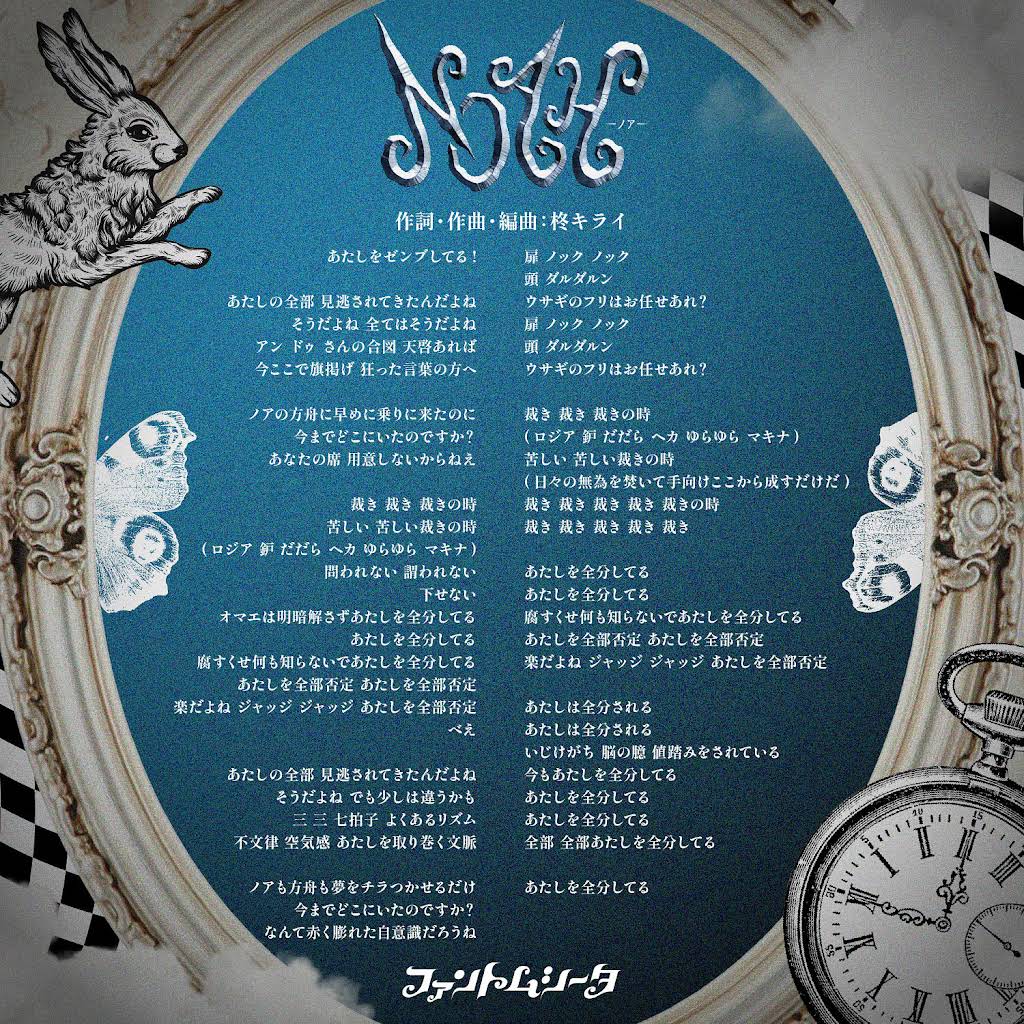 NOAH
ーノアー
作詞・作曲・編曲：柊キライ
あたしをゼンブしてる！
あたしの全部 見逃されてきたんだよね
そうだよね 全てはそうだよね
アン ドゥ さんの合図 天啓あれば
今ここで旗揚げ 狂った言葉の方へ
ノアの方舟に早めに乗りに来たのに
今までどこにいたのですか？
あなたの席 用意しないからねえ
裁き 裁き 裁きの時
苦しい 苦しい裁きの時
(ロジア 鈩 だだら ヘカ ゆらゆら マキナ)
問われない 謂われない
下せない
オマエは明暗解さずあたしを全分してる
あたしを全分してる
腐すくせ何も知らないであたしを全分してる
あたしを全部否定 あたしを全部否定
楽だよね ジャッジ ジャッジ あたしを全部否定
べえ
あたしの全部 見逃されてきたんだよね
そうだよね でも少しは違うかも
三 三 七拍子 よくあるリズム
不文律 空気感 あたしを取り巻く文脈
ノアも方舟も夢をチラつかせるだけ
今までどこにいたのですか？
なんて赤く膨れた自意識だろうね
扉 ノック ノック
頭 ダルダルン
ウサギのフリはお任せあれ？
扉 ノック ノック
頭 ダルダルン
ウサギのフリはお任せあれ？
裁き 裁き 裁きの時
(ロジア 鈩 だだら ヘカ ゆらゆら マキナ)
苦しい 苦しい裁きの時
(日々の無為を焚いて手向けここから成すだけだ)
裁き 裁き 裁き 裁き 裁きの時
裁き 裁き 裁き 裁き 裁き
あたしを全分してる
あたしを全分してる
腐すくせ何も知らないであたしを全分してる
あたしを全部否定 あたしを全部否定
楽だよね ジャッジ ジャッジ あたしを全部否定
あたしは全分される
あたしは全分される
いじけがち 脳の臆 値踏みをされている
今もあたしを全分してる
あたしを全分してる
あたしを全分してる
全部 全部あたしを全分してる
あたしを全分してる
ファントムシータ